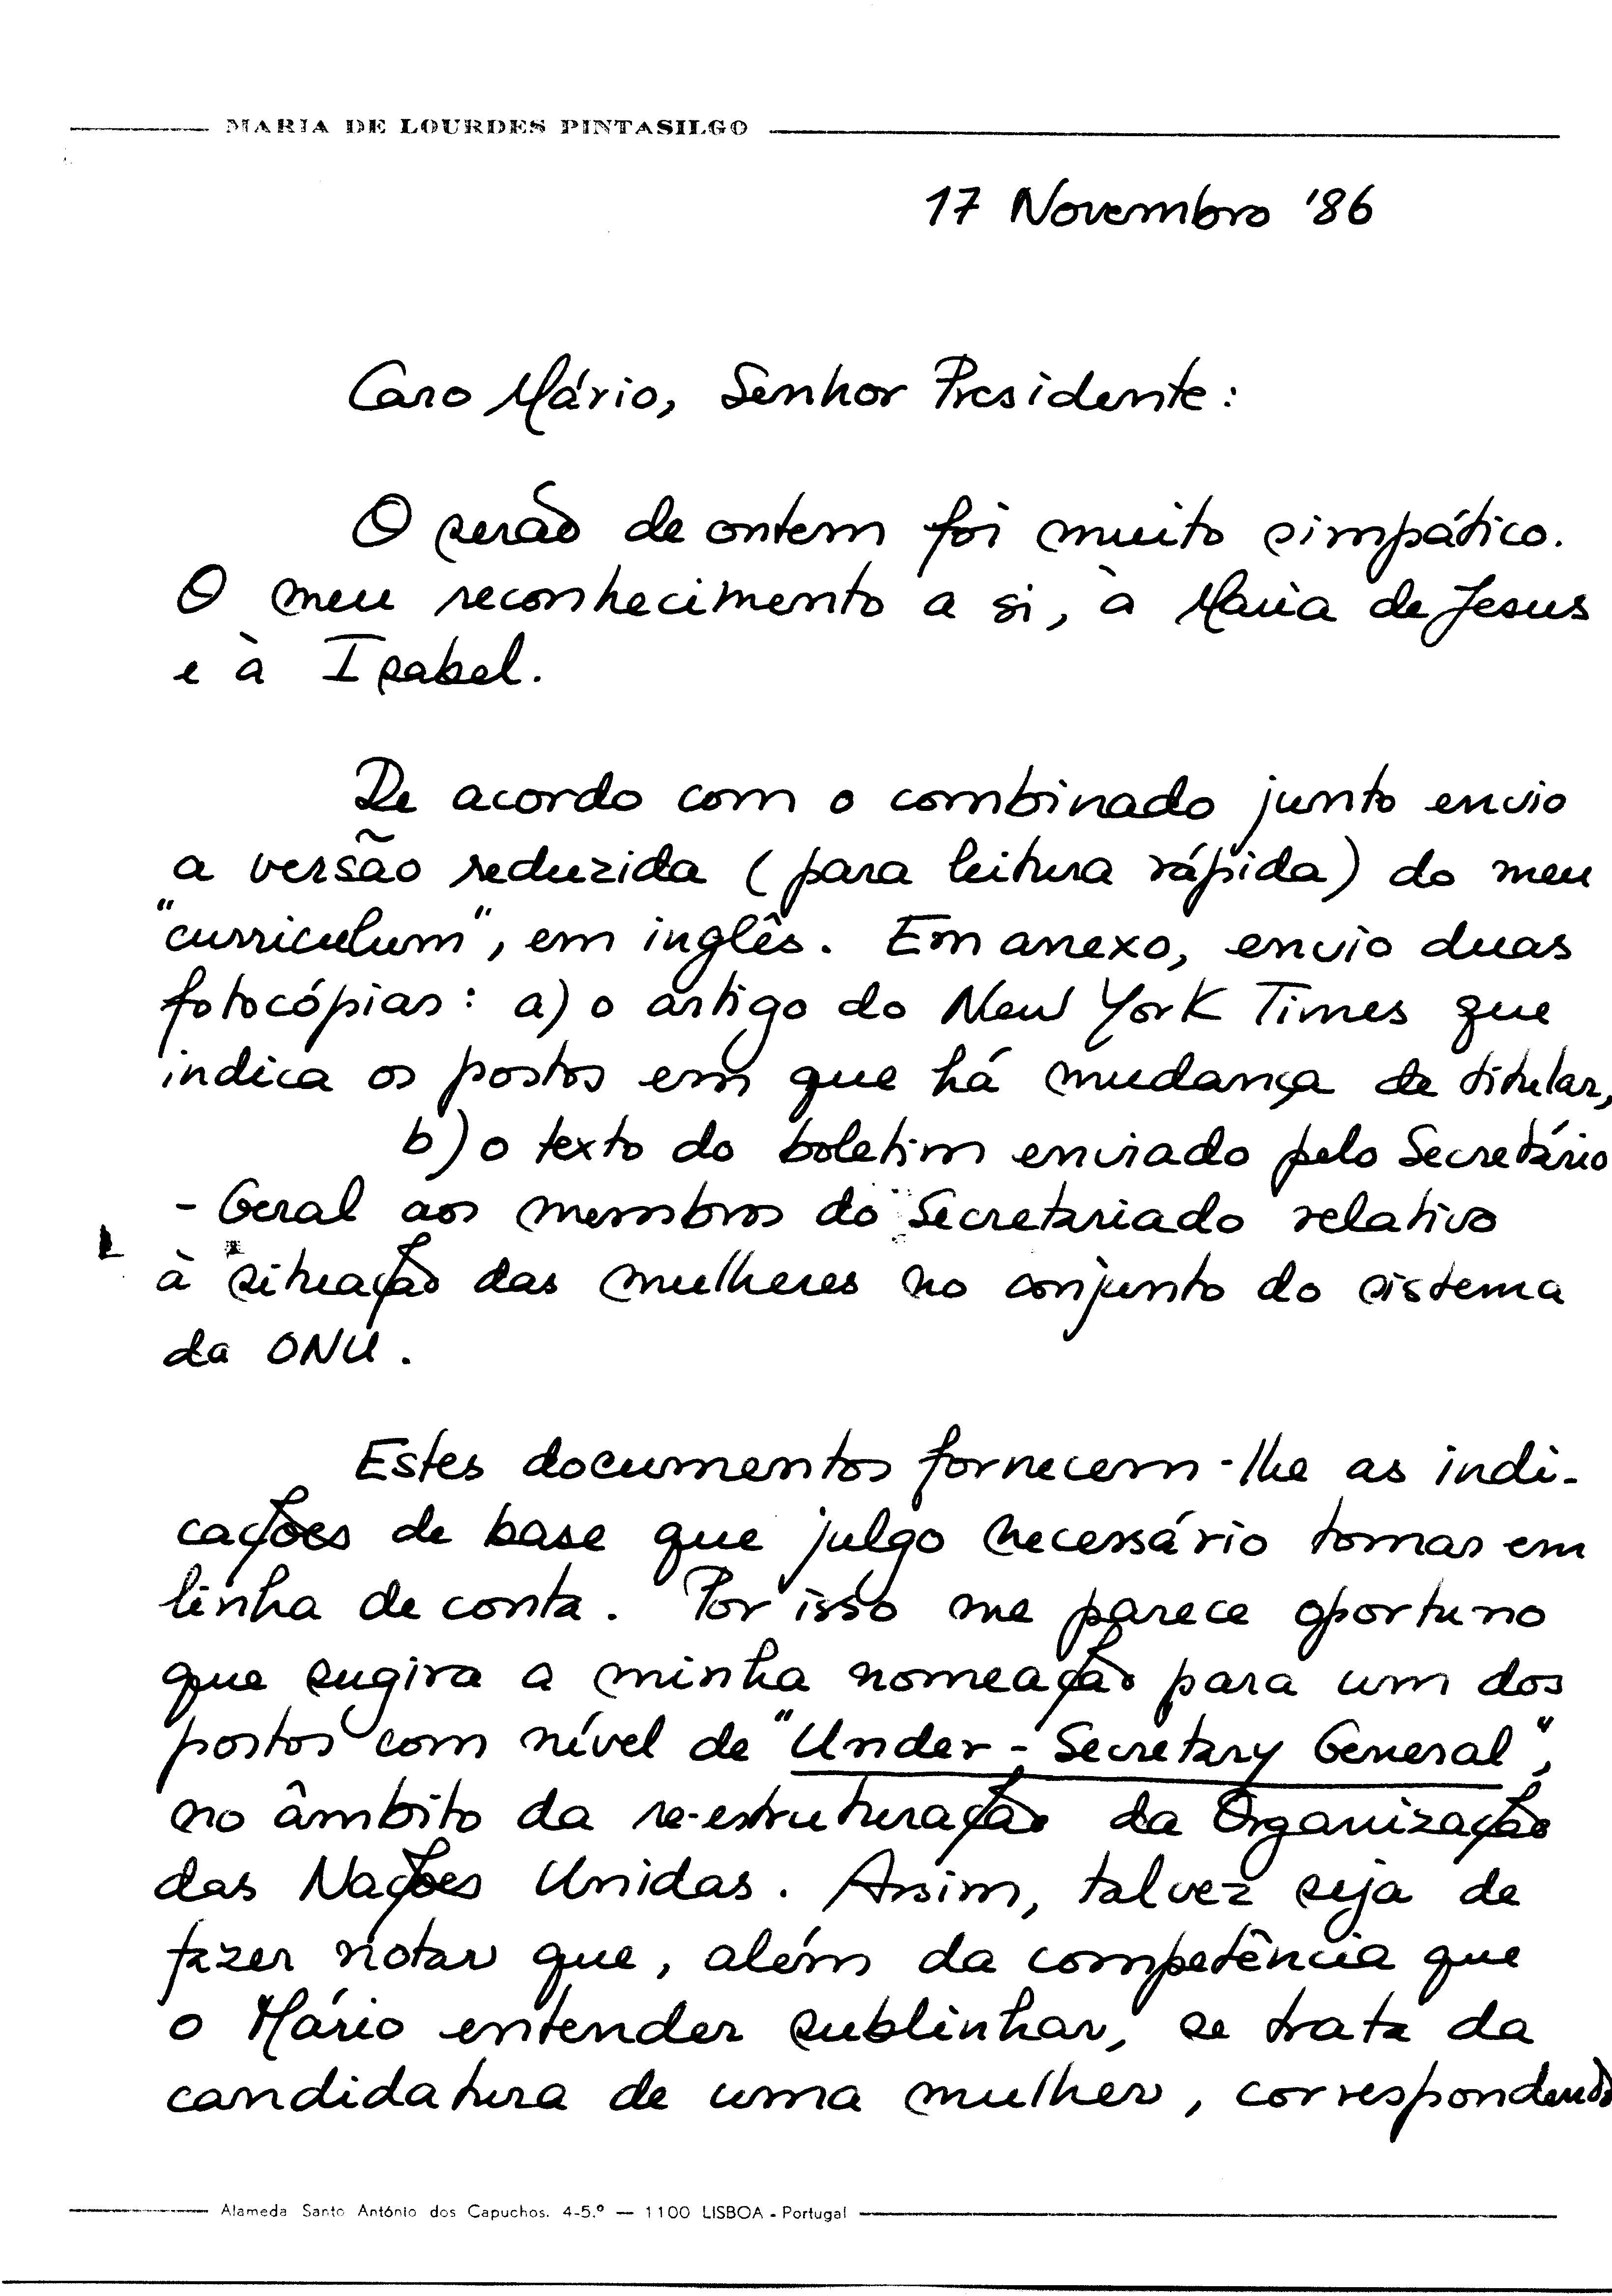 MARIA DE LOURDES PINTASILGO
17 Novembro '86
Caro Mário, Senhor Presidente:
O serão de ontem foi muito simpático.
O meu reconhecimento a si, à Maria de Jesus
e à Isabel.
De acordo com o combinado junto envio
a versão reduzida (para leitura rápida) do meu
"curriculum", em inglês. Em anexo, envio duas
fotocópias: a) o artigo do New York Times que
indica os postos em que há mudança de titular,
b) o texto do boletim enviado pelo Secretário
- Geral aos membros do Secretariado relativo
à situação das mulheres no conjunto do sistema
da ONU.
Estes documentos fornecem-lhe as indi-
cações de base que julgo necessário tomar em
linha de conta. Por isso me parece oportuno
que sugira a minha nomeação para um dos
postos com nível de "Under-Secretary General",
no âmbito da re-estruturação da Organização
das Nações Unidas. Assim, talvez seja de
fazer notar que, além da competência que
o Mário entender sublinhar, se trata da
candidatura de uma mulher, correspondendo
Alameda Santo António dos Capuchos, 4-5.º — 1100 LISBOA - Portugal